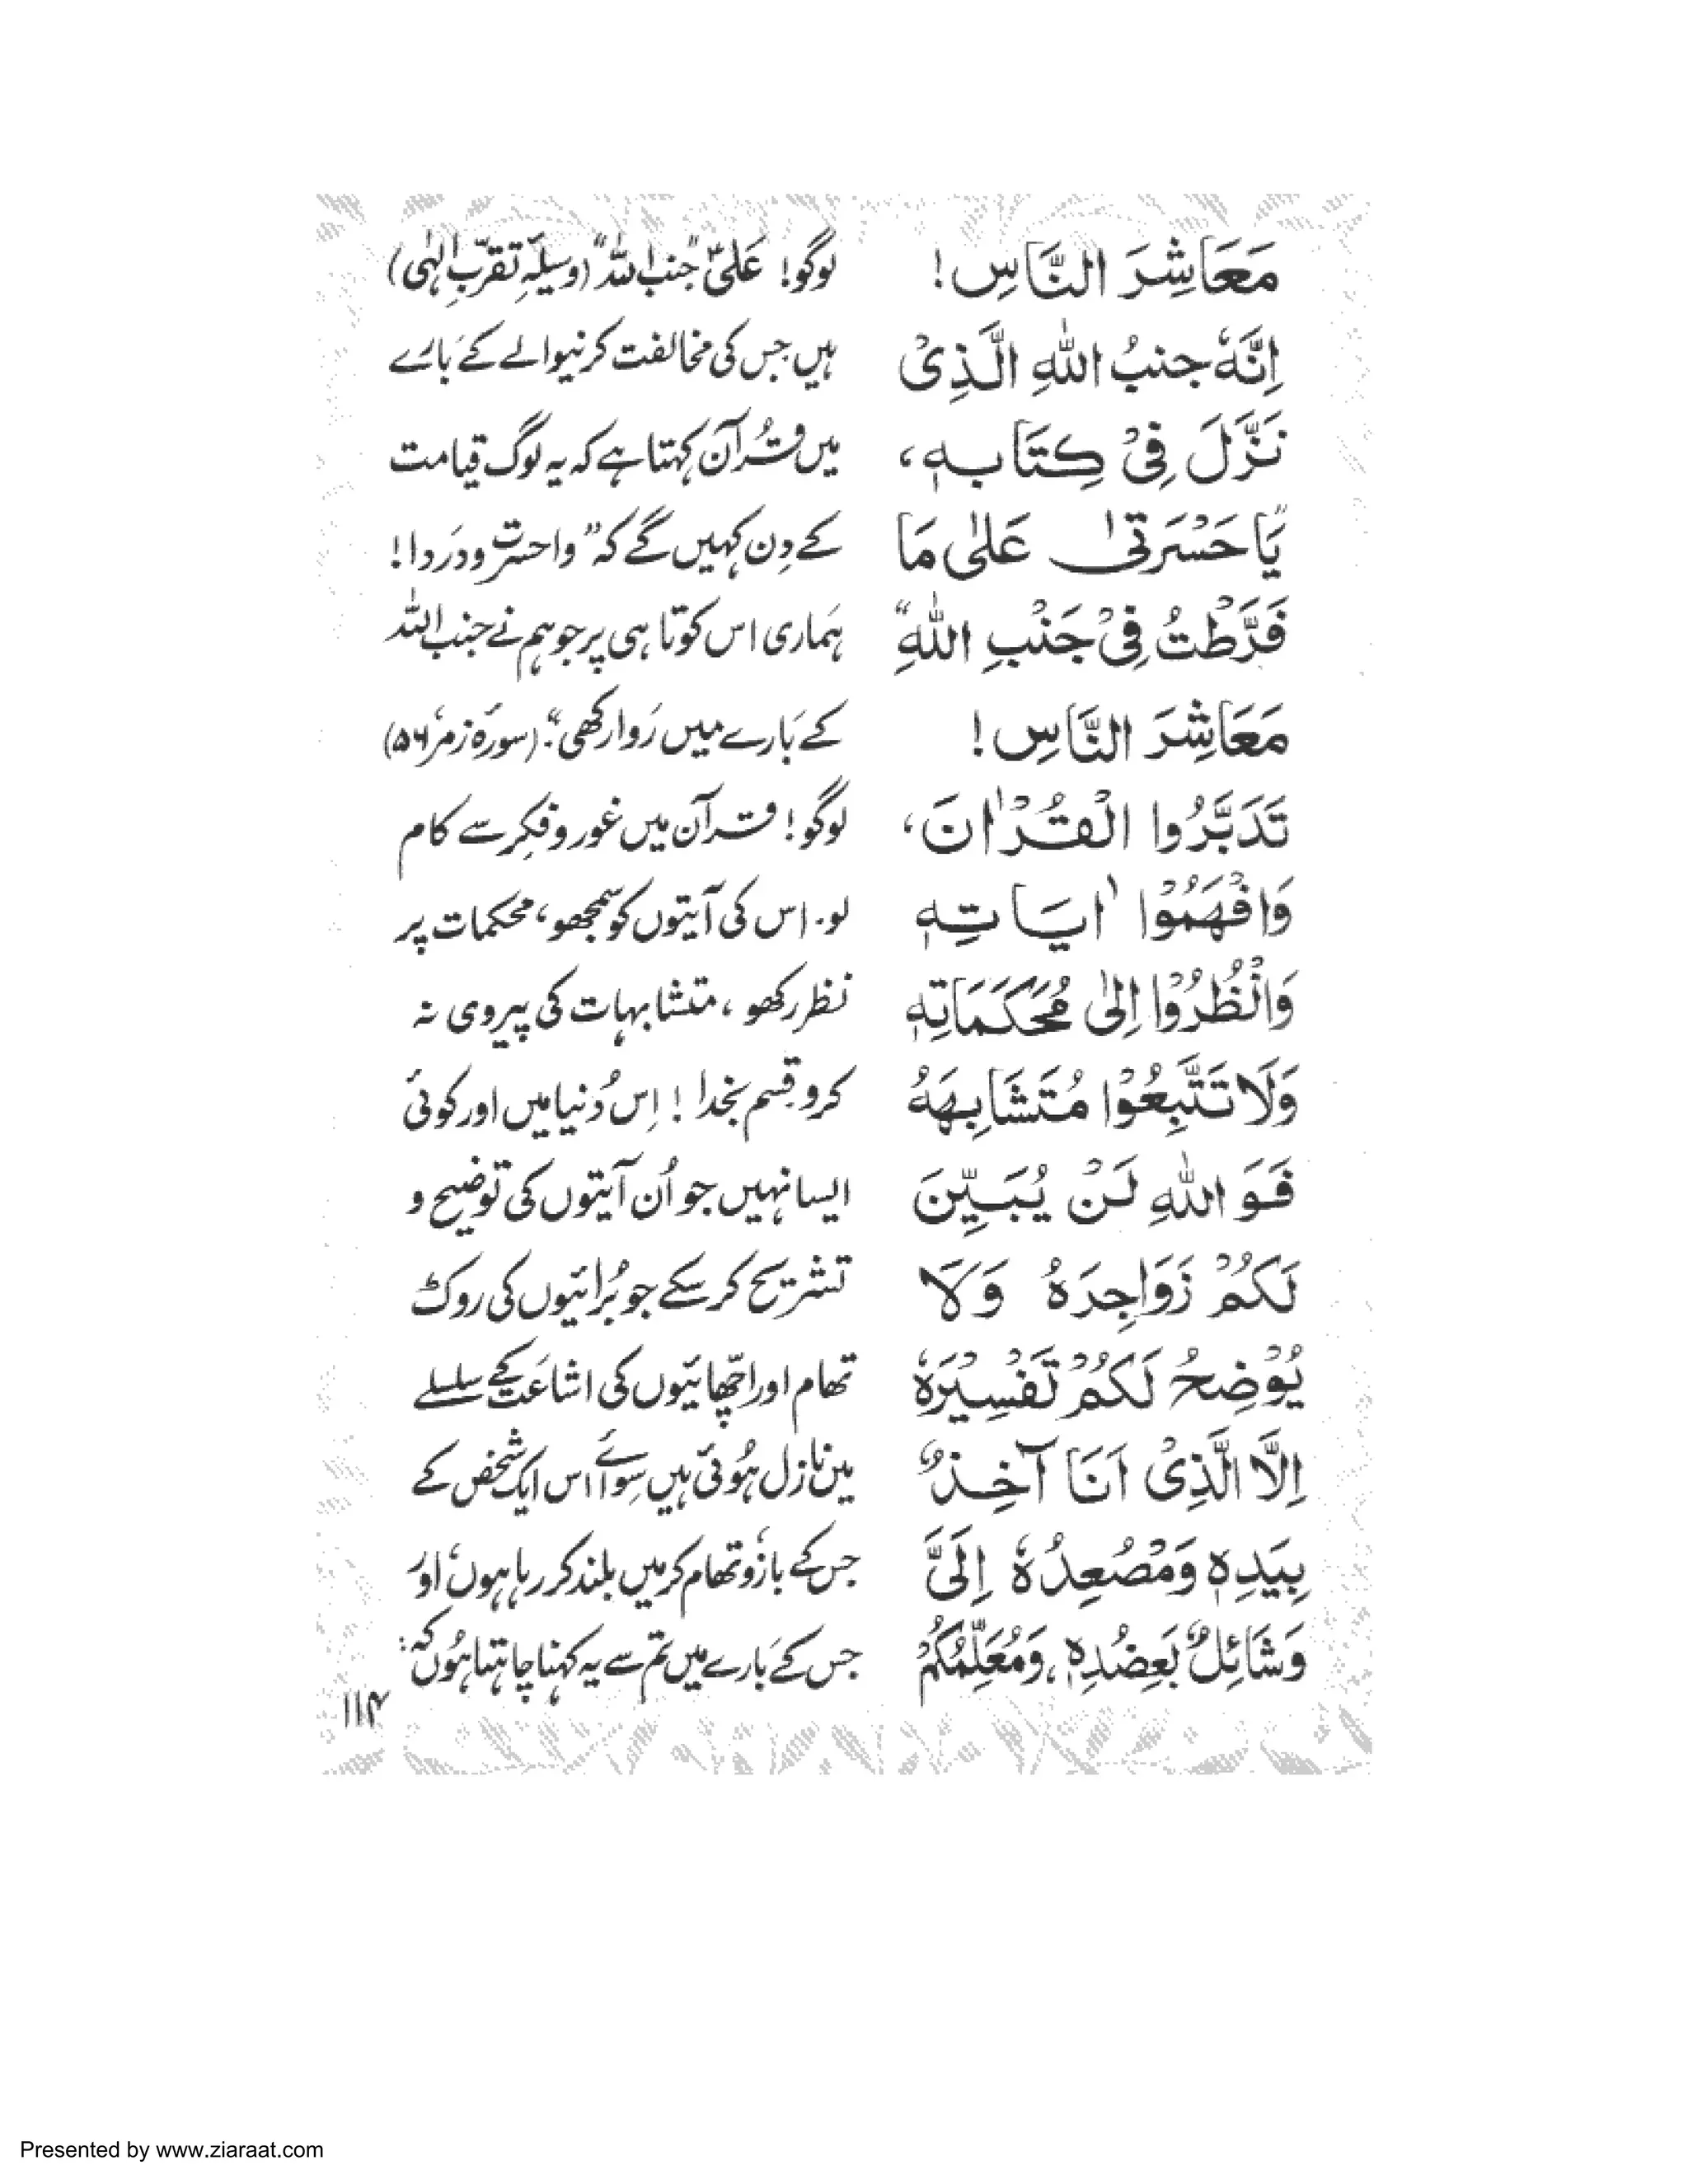 مَعَاشِرَ النَّاسِ!
اِنَّهٗ جنبُ اللّٰهِ الَّذِیْ
نَزَّلَ فِیْ کِتَابِهٖ،
"یَا حَسْرَتیٰ عَلیٰ مَا
فَرَّطْتُ فِیْ جَنْبِ اللّٰهِ"
مَعَاشِرَ النَّاسِ!
تَدَبَّرُوا الْقُرْاٰنَ،
وَافْهَمُوْا اٰیَاتِهٖ
وَانْظُرُوْا اِلیٰ مُحَکَمَاتِهٖ
وَلَا تَتَّبِعُوْا مُتَشَابِهَهُ
فَوَ اللّٰهِ لَنْ یُبَیِّنَ
لَکُمْ زَوَاجِرَهُ وَلَا
یُوْضِحُ لَکُمْ تَفْسِیْرَهٗ
اِلَّا الَّذِیْ اَنَا آخِذٌ
بِیَدِهٖ وَمُصْعِدُهٗ اِلَیَّ
وَشَائِلٌ بَعِضُدِهٖ، وَمُعَلِّمُکُمْ
لوگو! عَلیؑ "جنب اللہ" (وسیلۂ تقرّبِ الٰہی)
ہیں جس کی مخالفت کرنیوالے کے بَارے
میں قُرآن کہتا ہے کہ یہ لوگ قیامت
کے دِن کہیں گے کہ "واحسرت و دَردا!
ہَماری اس کوتاہی پر جو ہم نے جنب اللہ
کے بَارے میں رَوا رکھی"۔ (سورۂ زمر ۵۶)
لوگو! قرآن میں غور و فِکر سے کام
لو۔ اس کی آیتوں کو سمجھو، محکمات پر
نظر رکھو، متشابہات کی پیروی نہ
کرو۔ قسم بخدا! اِس دُنیا میں اور کوئی
ایسا نہیں جو اُن آیتوں کی توضیح و
تشریح کر سکے جو بُرائیوں کی روک
تھام اور اچّھائیوں کی اشاعَت کے سلسلے
میں نازل ہُوئی ہیں سِوائے اس ایک شخص کے
جس کے بازو تھام کر میں بلند کر رہا ہوں، اور
جس کے بَارے میں تم سے یہ کہنا چاہتا ہُوں کہ:
۱۱۴
Presented by www.ziaraat.com